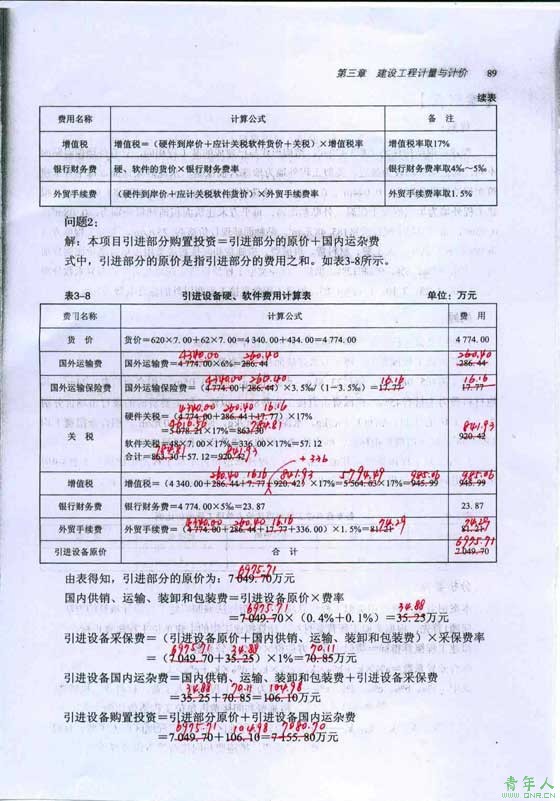 第三章 建设工程计量与计价 89
续表
费用名称 计算公式 备 注
增值税 增值税=(硬件到岸价+应计关税软件货价+关税)×增值税率 增值税率取17%
银行财务费 硬、软件的货价×银行财务费率 银行财务费率取4‰~5‰
外贸手续费 (硬件到岸价+应计关税软件货价)×外贸手续费率 外贸手续费率取1.5%
问题2:
解:本项目引进部分购置投资=引进部分的原价+国内运杂费
式中,引进部分的原价是指引进部分的费用之和。如表3-8所示。
表3-8 引进设备硬、软件费用计算表 单位:万元
费用名称 计算公式 费 用
货 价 货价=620×7.00+62×7.00=4 340.00+434.00=4 774.00 4 774.00
4340.00 260.40 260.40
国外运输费 国外运输费=4 774.00×6%=286.44 286.44
4340.00 260.40 16.16 16.16
国外运输保险费 国外运输保险费=(4 774.00+286.44)×3.5‰/(1-3.5‰)=17.77 17.77
4340.00 260.40 16.16
硬件关税=(4 774.00+286.44+17.77)×17%
4616.56 784.81
=5 078.21×17%=863.30
关 税 841.93 920.42
软件关税=48×7.00×17%=336.00×17%=57.12
784.81 841.93
合计=863.30+57.12=920.42
+336
260.40 16.16 841.93 5794.49 985.06 985.06
增值税 增值税=(4 340.00+286.44+7.77+920.42)×17%=5 564.63×17%=945.99 945.99
银行财务费 银行财务费=4 774.00×5‰=23.87 23.87
4340.00 260.40 16.16 74.29 74.29
外贸手续费 外贸手续费=(4 774.00+286.44+17.77+336.00)×1.5%=81.21 81.21
6975.71
引进设备原价 合 计 7 049.70
6975.71
由表得知,引进部分的原价为:7 049.70万元
国内供销、运输、装卸和包装费=引进设备原价×费率
6975.71 34.88
=7 049.70×(0.4%+0.1%)=35.25万元
引进设备采保费=(引进设备原价+国内供销、运输、装卸和包装费)×采保费率
6975.71 34.88 70.11
=(7 049.70+35.25)×1%=70.85万元
引进设备国内运杂费=国内供销、运输、装卸和包装费+引进设备采保费
34.88 70.11 104.98
=35.25+70.85=106.10万元
引进设备购置投资=引进部分原价+引进设备国内运杂费
6975.71 104.98 7080.70
=7 049.70+106.10=7 155.80万元
青年人
WWW.QNR.CN